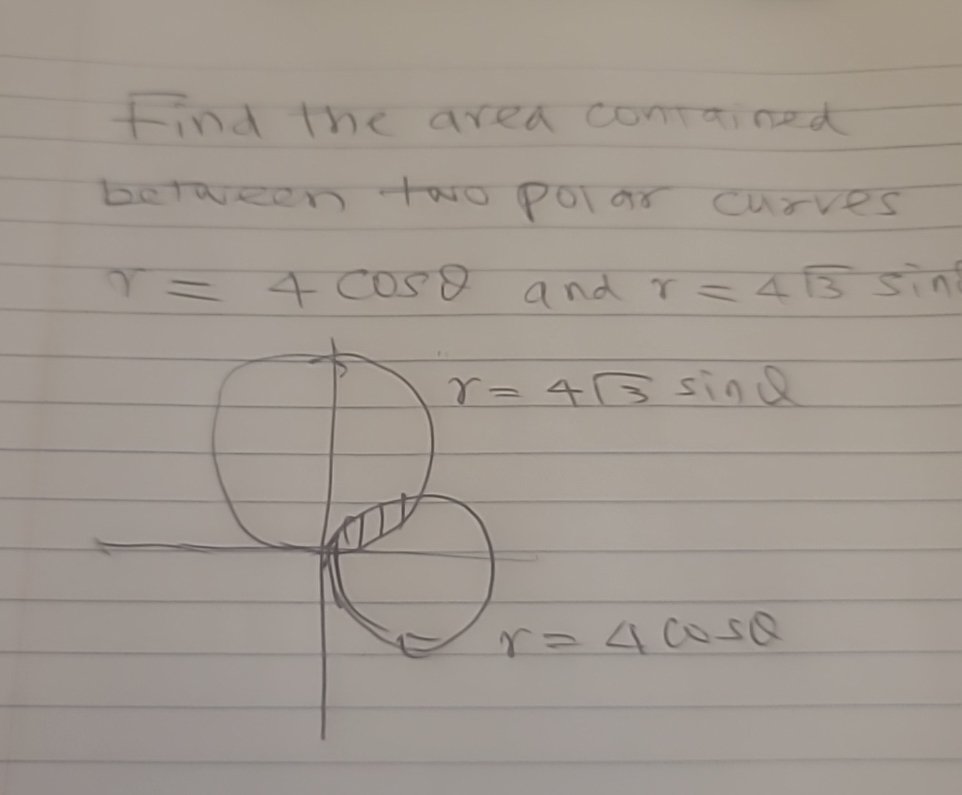 Find the area contained
between two polar curves
r = 4 cosθ and r = 4√3 sinθ
r = 4√3 sinθ
r = 4 cosθ